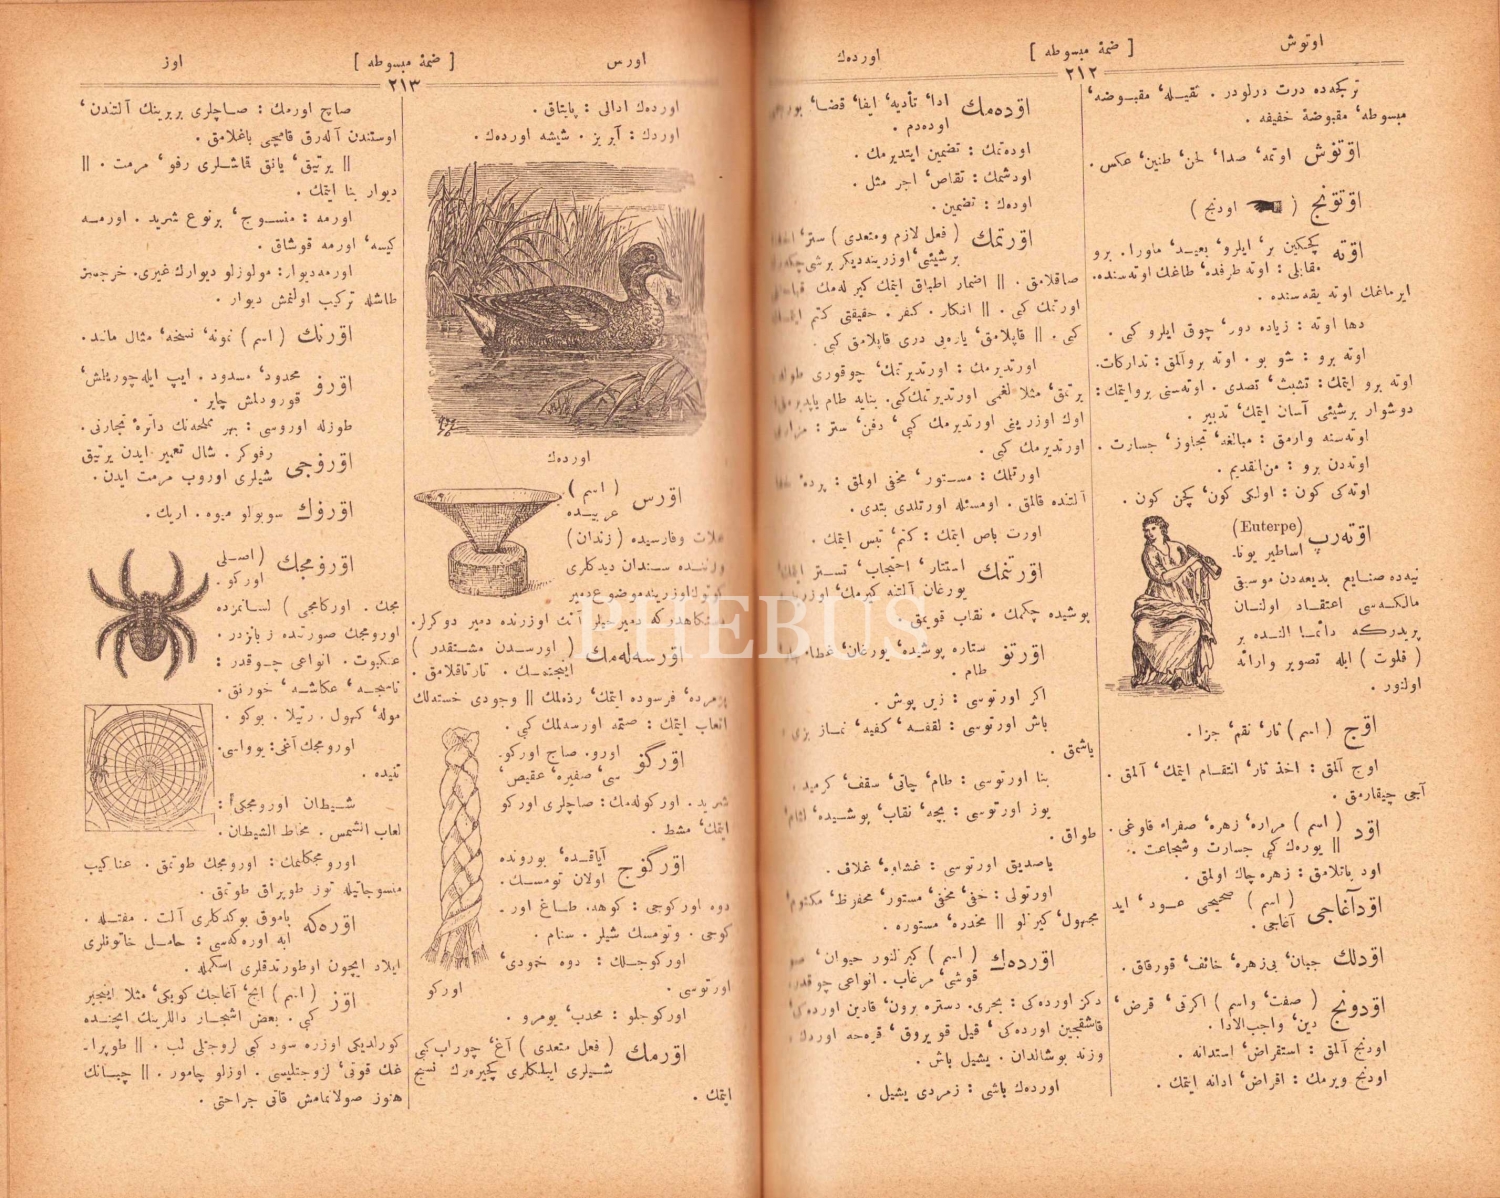 اوتوش [ ضمهٔ مبسوطه ] اوردەك
٢١٢
تركجه‌ده درت درلودر . ثقیله‘ مقبوضه‘
مبسوطه‘ مقبوضهٔ خفیفه .
اۆتۆش اوتمه‘ صدا‘ لحن‘ طنین‘ عكس .
اۆتۆنج ( اودنج )
اۆته كچكین بر‘ ایلرو‘ بعیـد‘ ماورا . برو
مقابلی : اوته طرفده‘ طاغك اوته‌سنده .
ایرماغك اوته یقه‌سنده .
دها اوته : زیاده دور‘ چوق ایلرو كبی .
اوته برو : شو بو . اوته بروآلمق : تداركات .
اوته برو ایتمك : تشبث‘ تصدی . اوته‌سنی بروایتمك :
دوشوار برشیئی آسان ایتمك‘ تدبیر .
اوته‌سنه وارمق : مبالغه‘ تجاوز‘ جسارت .
اوته‌دن برو : من‌القدیم .
اوته‌كی كون : اولكی كون‘ كچن كون .
اۆته‌رپ (Euterpe)
اساطیر یونا‌ـ
نیه‌ده صنایع بدیعه‌دن موسیقی
مالكـه‌سی اعتقـاد اولنـان
پریدركه دائمـا النـده بر
( فلوت ) ایله تصویر وارائه
اولنور .
اۆج ( اسم ) ثار‘ نقم‘ جزا .
اوج آلمق : اخذ ثار‘ انتقـام ایتمك‘ آلمق .
آجی چیقارمق .
اۆد ( اسم ) مراره‘ زهره‘ صفراء قاوغی .
‖ یوره‌ك كبی جسارت وشجاعت .
اود پاتلامق : زهره‌چاك اولمق .
اۆدآغاجی ( اسم ) صحیحی عـود‘ اید
آغاجی .
اۆدلك جبان‘ بی‌زهره‘ خائف‘ قورقاق .
اۆدونج ( صفت‘ واسم ) اكرتی‘ قرض‘
دین‘ واجب‌الادا .
اودنج آلمق : استقراض‘ استدانه .
اودنج ویرمك : اقراض‘ ادانه ایتمك .
اۆده‌مك ادا‘ تأدیه‘ ایفا‘ قضـا‘
اوده‌دم .
اوده‌تمك : تضمین ایتدیرمك .
اودشمك : تقاص‘ اجر مثل .
اوده‌ك : تضمین .
اۆرتمك ( فعل لازم ومتعدی ) ستر‘
برشیئی‘اوزرینه‌دیكر برشی
صاقلامق . ‖ اضمار اطباق ایتمك كیزله‌مك
اورتمك كبی . ‖ انكار . كفر . حقیقتی كتم
كبی . ‖ قاپلامق‘ یاره‌یی دری قاپلامق كبی .
اورتدیرمك : اورتدیرتمك‘ چوقوری
یرتمق‘ مثلا لغمی اورتدیرتمك‌كبی . بنایه طام
اوك اوزرینی اورتدیرمك كبی‘ دفن‘ ستر :
اورتدیرمك كبی .
اورتمك : مسـتور‘ مخفی اولمق : پرده‘
آلتنده قالمق . اومسئله اورتلدی بتدی .
اورت باص ایتمك : كتم‘ تبس ایتمك .
اۆرتنمك استتار‘ احتجاب‘ تسـتر
یورغان آلتنه كیرمك‘
پوشیده چكمك . نقاب قویمق .
اۆرتۆ ستاره پوشیده‘ یورغان‘ غطا
طام .
اكر اورتوسی : زین پوش .
باش اورتوسی : لففـه‘ كفیه‘ نمـاز
یاشمق .
بنا اورتوسی : طام‘ چاتی‘ سقف‘
یوز اورتوسی : پچه‘ نقاب‘ پوشـیده‘
طواق .
یاصدیق اورتوسی : غشاوه‘ غلاف .
اورتولی : خفی‘ مخفی‘ مستور‘ محفوظ‘
مجهول‘ كیزلو ‖ مخدره‘ مستوره .
اۆرده‌ك ( اسم ) كبزلنور حیوان‘
قوشی‘ مرغاب . انواعی
دكز اورده‌كی : بحری . دستره برون‘ قادین
قاشقجین اورده‌كی‘ قیل قویروق‘ قره‌جه
وزنه بوشالدان . یشیل باش .
اورده‌ك باشی : زمردی یشیل .
اورس [ ضمهٔ مبسوطه ] اوز
٢١٣
اورده‌ك ادالی : پایتاق .
اوردك : آبریز . شیشه اورده‌ك .
اورده‌ك
اۆرس ( اسم )
عربیـده
علات وفارسیده ( زندان )
سـندان دیدكلری
موضوع‌دمیر
دمیرجیلر آنك اوزرنده دمیر دوكرلر .
اۆرسه‌له‌مك ( اورسـدن مشـتقدر )
اینجتمـك . تارتاقلامق .
پژمرده‘ فرسوده ایتمك‘ رذه‌لمك ‖ وجودی خسته‌لك
اتعاب ایتمك : صتمه اورسه‌لمك كبی .
اۆرگۆ اورو . صاچ اوركو‌ـ
سی‘ صفیره‘ عقیص‘
شرید . اوركوله‌مك : صاچلری اوركو
ایتمك‘ مشط .
اۆرگۆج آیاقـده‘ بورونده
اولان تومسـك .
دوه اوركوجی : كوهه . طـاغ اور‌ـ
كوجی . وتومسك شیلر . سنام .
اوركوجـلك : دوه خودی‘
اورتوسی . اوركو
اوركوجلو : محدب‘ یومرو .
اۆرمك ( فعل متعدی ) آغ‘ چوراب‌كبی
شـیلری ایبلكلری كچیره‌رك نسج
ایتمك .
صاچ اورمك : صـاچلری بربرینك آلتندن‘
اوستندن آله‌رق قامچی باغلامق .
‖ یرتیق‘ یانق قاشـلری رفو‘ مرمت . ‖
دیوار بنا ایتمك .
اورمه : منسـوج‘ برنوع شرید . اورمـه
كیسه‘ اورمه قوشاق .
اورمه‌دیوار : مولوزلو دیوارك غیری . خرجسز
طاشله تركیب اولنمش دیوار .
اۆرنك ( اسم ) نمونه‘ نسخه‘ مثال مانـد .
اۆرۆ محدود‘ مسدود . ایپ ایله‌چوریلمش‘
قورودلمش چایر .
طوزله اوروسی : بهر مملحه‌نك دائرهٔ مجارتی .
اۆرۆجی رفوكر . شال تعمیر ایدن یرتیق
شیلری اوروب مرمت ایدن .
اۆرۆك سوبولو میوه . اریك .
اۆرۆمجك (اصـلی
اوركو‌ـ
مجك . اوركامجی ) لسـانمزده
اورومجك صورتـده یازیلر .
عنكبوت . انواعی چـوقدر :
ناسجـه‘ عكاشـه‘ خورنق .
موله‘ كهول . رتیلا . بوكو .
اورومجك آغی : یوواسی .
تنیده .
شـیطان اورومجكی :
لعاب الشمس . مخاط الشیطان .
اورومجكلنمك : اورومجك طوتمق . عناكیب
منسوجاتیله توز طوپراق طوتمق .
اۆره‌كه پاموق بوكدكلری آلت . مفتـله .
ابه اوره‌كه‌سی : حامـل خاتونلری
ایلاد ایچون اوطورتدقلری اسكمله .
اۆز ( اسم ) ایچ‘ آغاجك كوبكی‘ مثلا اینجیر
كبی . بعض اشجـار دالرینك ایچنـده
كورلدیكی اوزره سود كبی لزوجتلی لب . ‖ طوپرا‌ـ
غك قوتی‘ لزوجتلیسی . اوزلو چامور . ‖ چبـانك
هنوز صولانمامش قاتی جراحتی .
PHEBUS